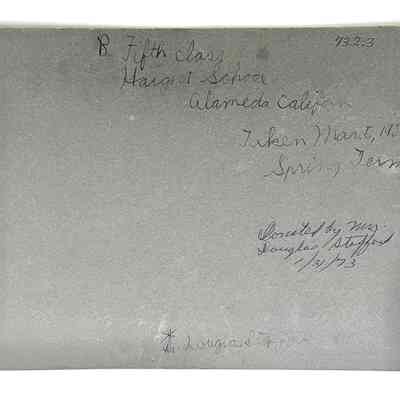 B Fifth Class 73.2.3
Haight School
Alameda Califor
Taken Mar 1,
Spring Term
Donated by Mr.
Douglas Stafford
1/31/73
Douglas